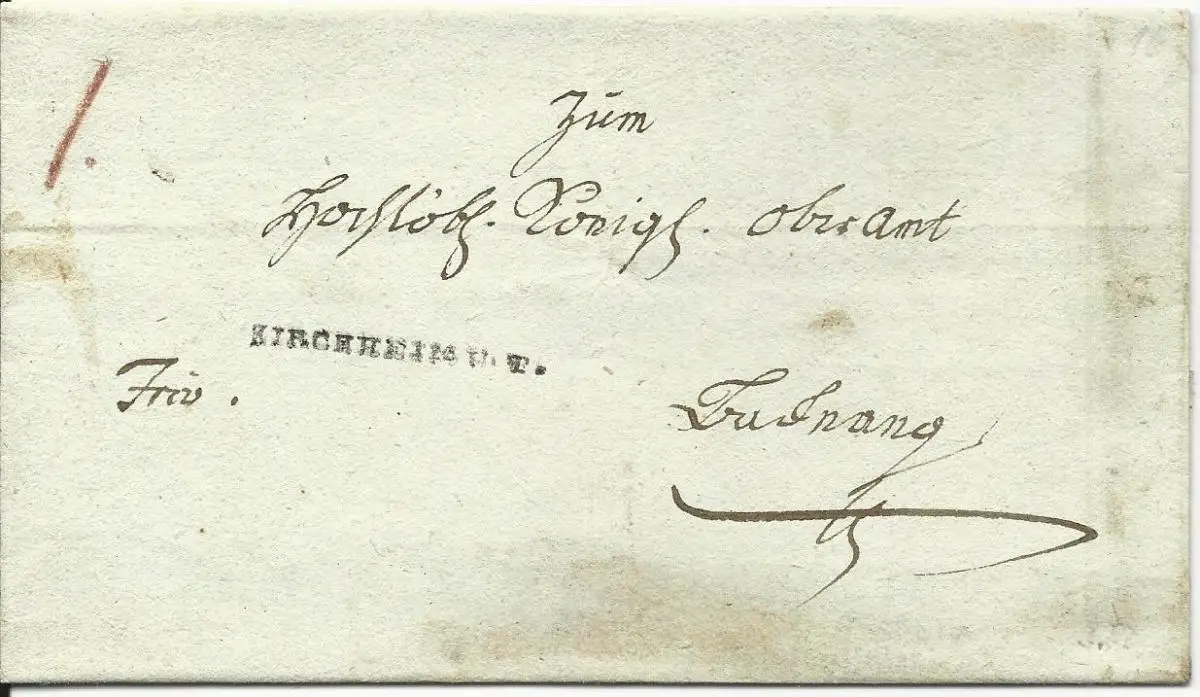 Zum
Hochlöbl. Königl. Oberamt
KIRCHHEIM U. T.
Backnang